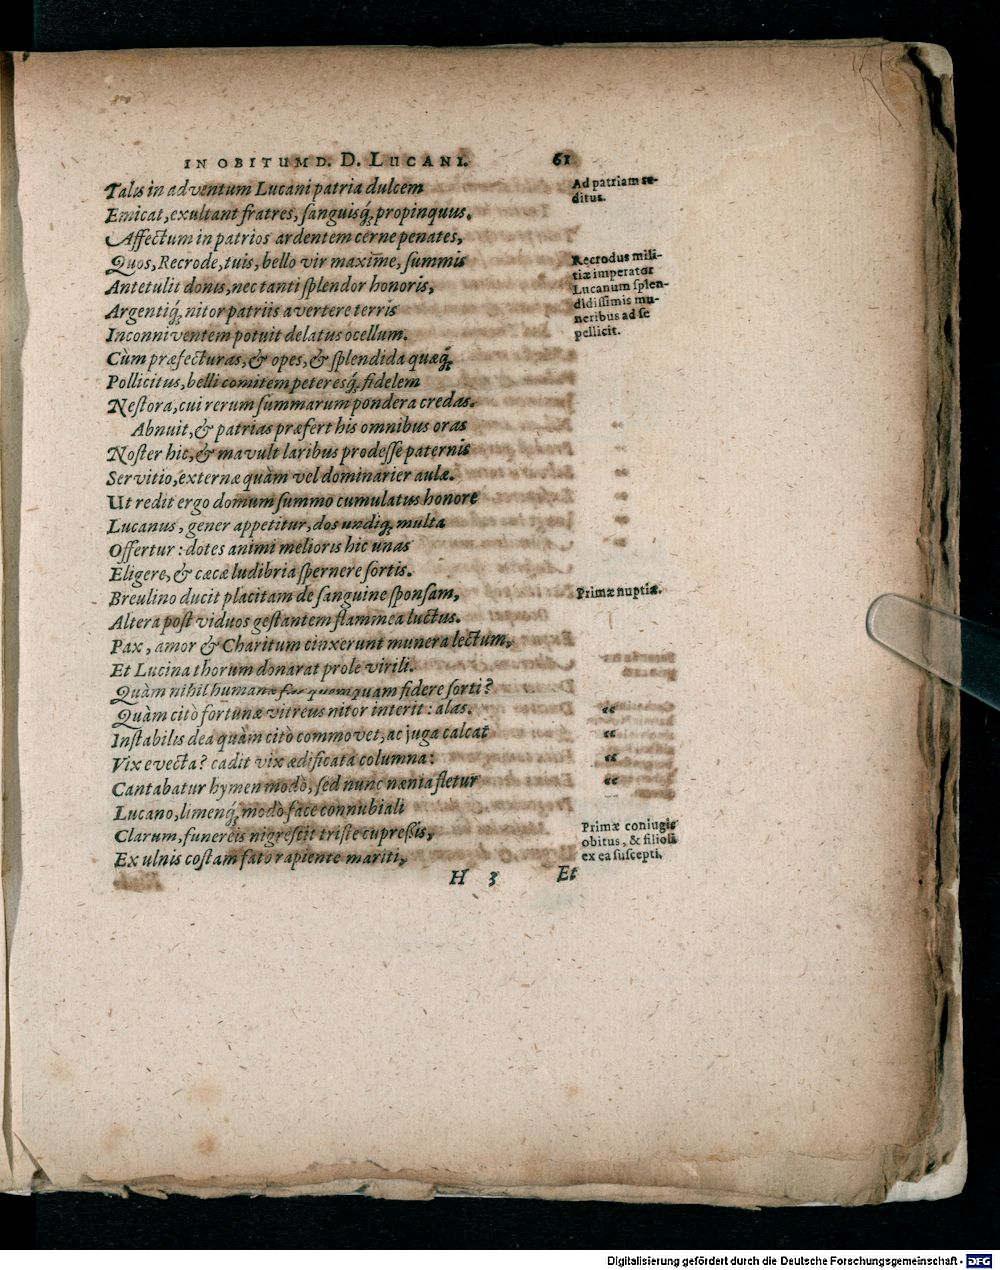 IN OBITUM D. D. LUCANI. 61
Talis in adventum Lucani patria dulcem
Ad patriam re-
ditus.
Emicat, exultant fratres, sanguisq́, propinquus.
Affectum in patrios ardentem cerne penates,
Quos, Recrode, tuis, bello vir maxime, summis
Recrodus mili-
tiæ imperator
Lucanum splen-
didissimis mu-
neribus ad se
pellicit.
Antetulit donis, nec tanti splendor honoris,
Argentiq́, nitor patriis avertere terris
Inconniventem potuit delatus ocellum.
Cùm præfecturas, & opes, & splendida quæq́,
Pollicitus, belli comitem peteresq́, fidelem
Nestora, cui rerum summarum pondera credas.
Abnuit, & patrias præfert his omnibus oras
Noster hic, & mavult laribus prodesse paternis
Servitio, externæ quàm vel dominarier aulæ.
Ut redit ergo domum summo cumulatus honore
Lucanus, gener appetitur, dos undiq, multa
Offertur: dotes animi melioris hic unas
Eligere, & cæcæ ludibria spernere sortis.
Breulino ducit placitam de sanguine sponsam,
Primæ nuptiæ.
Altera post viduos gestantem flammea luctus.
Pax, amor & Charitum cinxerunt munera lectum,
Et Lucina thorum donarat prole virili.
Quàm nihil humanæ quemquam fidere sorti?
Quàm citò fortunæ vitreus nitor interit: alas.
“
Instabilis dea quàm citò commovet, ac juga calcat
“
Vix evecta? cadit vix ædificata columna:
“
Cantabatur hymen modò, sed nunc nænia fletur
“
Lucano, limenq́, modò face connubiali
Clarum, funereis nigrescit triste cupressis,
Primæ coniugis
obitus, & filioli
ex ea suscepti.
Ex ulnis costam fato rapiente mariti,
H 3 Et
Digitalisierung gefördert durch die Deutsche Forschungsgemeinschaft - DFG